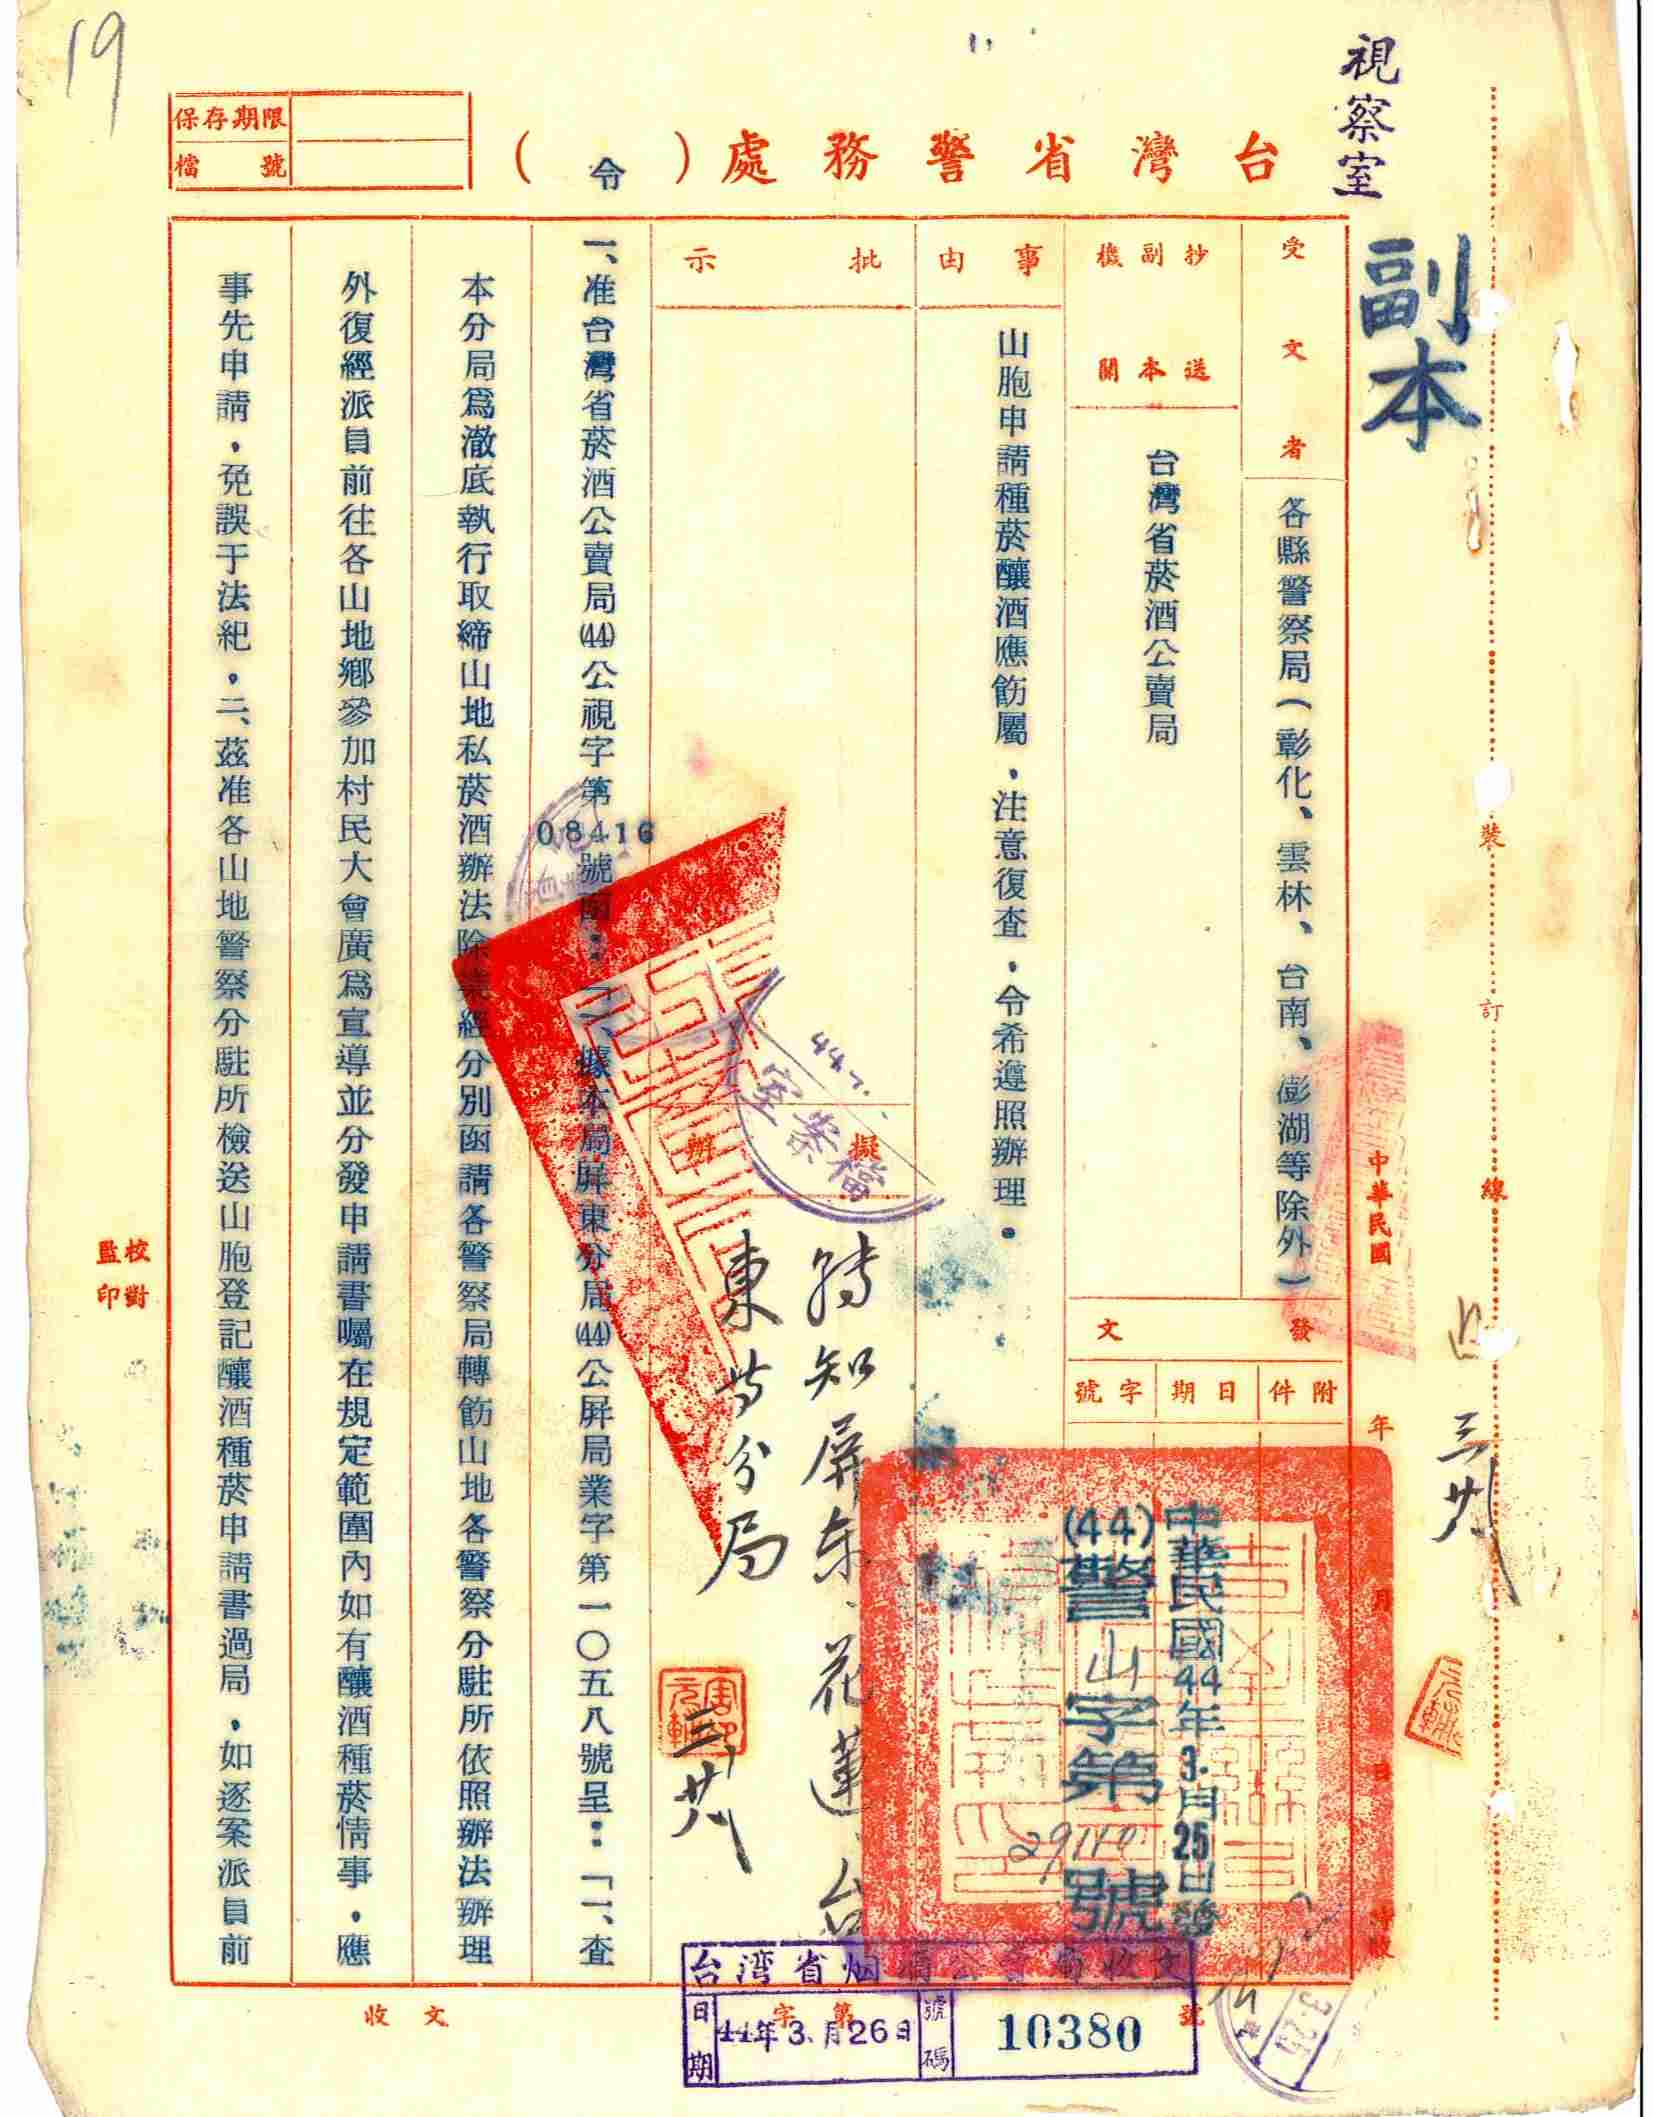 19
視察室
副本
台灣省警務處(令)
保存期限
檔號
受文者
各縣警察局(彰化、雲林、台南、澎湖等除外)
抄副機
送本關
台灣省菸酒公賣局
事由
山胞申請種菸釀酒應飭屬,注意復查,令希遵照辦理。
批示
擬辦
轉知屏东、花蓮、台
東等分局
三、廿八
發文
附件
日期
字號
中華民國44年3.月25日發
(44)警山字第29110號
中華民國
年
月
日
裝
訂
線
三廿八
一、准台灣省菸酒公賣局(44)公視字第08416號函:「一、據本局屏東分局(44)公屏局業字第一〇五八號呈:「一、查
本分局爲澈底執行取締山地私菸酒辦法除業經分別函請各警察局轉飭山地各警察分駐所依照辦法辦理
外復經派員前往各山地鄉參加村民大會廣爲宣導並分發申請書囑在規定範圍內如有釀酒種菸情事,應
事先申請,免誤于法紀,二、茲准各山地警察分駐所檢送山胞登記釀酒種菸申請書過局,如逐案派員前
校對
監印
檔案室
收文
字第
號
台湾省烟酒公賣局收文
日期
44年3.月26日
號碼
10380